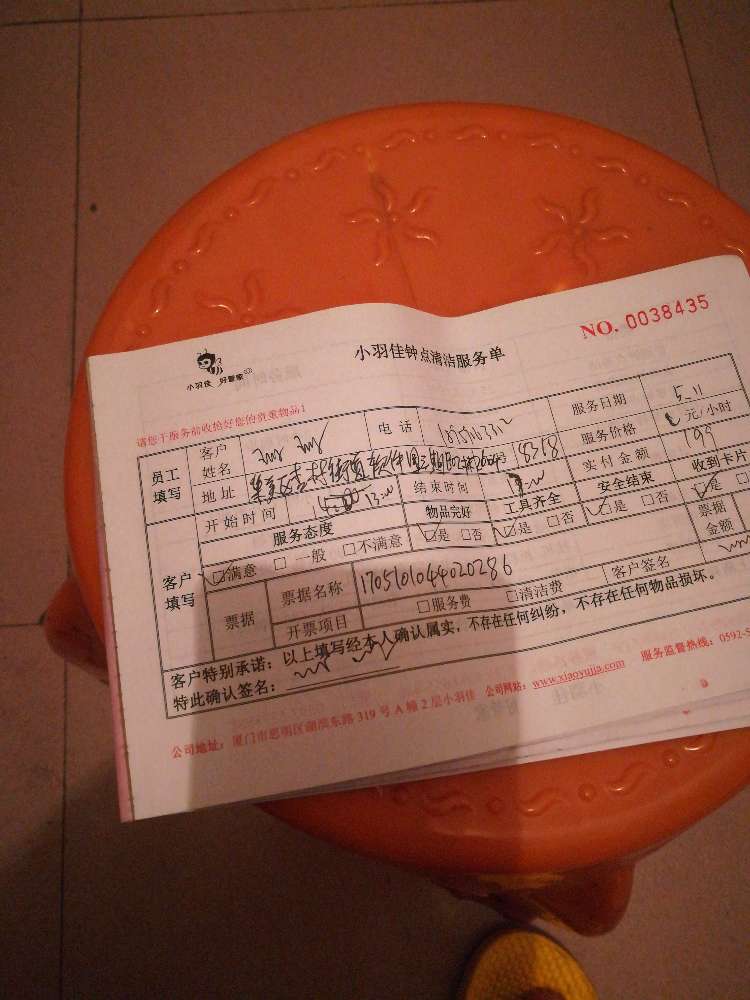 NO. 0038435
小羽佳 好管家
小羽佳钟点清洁服务单
请您于服务前收拾好您的贵重物品!
员工填写 客户姓名 电话 服务日期 5.11
地址 服务价格 元/小时
开始时间 13:00 结束时间 实付金额 199
客户填写 服务态度 物品完好 工具齐全 安全结束 收到卡片
满意 一般 不满意 是 否 是 否 是 否 是
票据 票据名称 1705101044020286 票据金额
开票项目 服务费 清洁费 客户签名
客户特别承诺:以上填写经本人确认属实,不存在任何纠纷,不存在任何物品损坏。
特此确认签名:
公司地址:厦门市思明区湖滨东路319号A幢2层小羽佳 公司网站:www.xiaoyujia.com 服务监督热线:0592-5